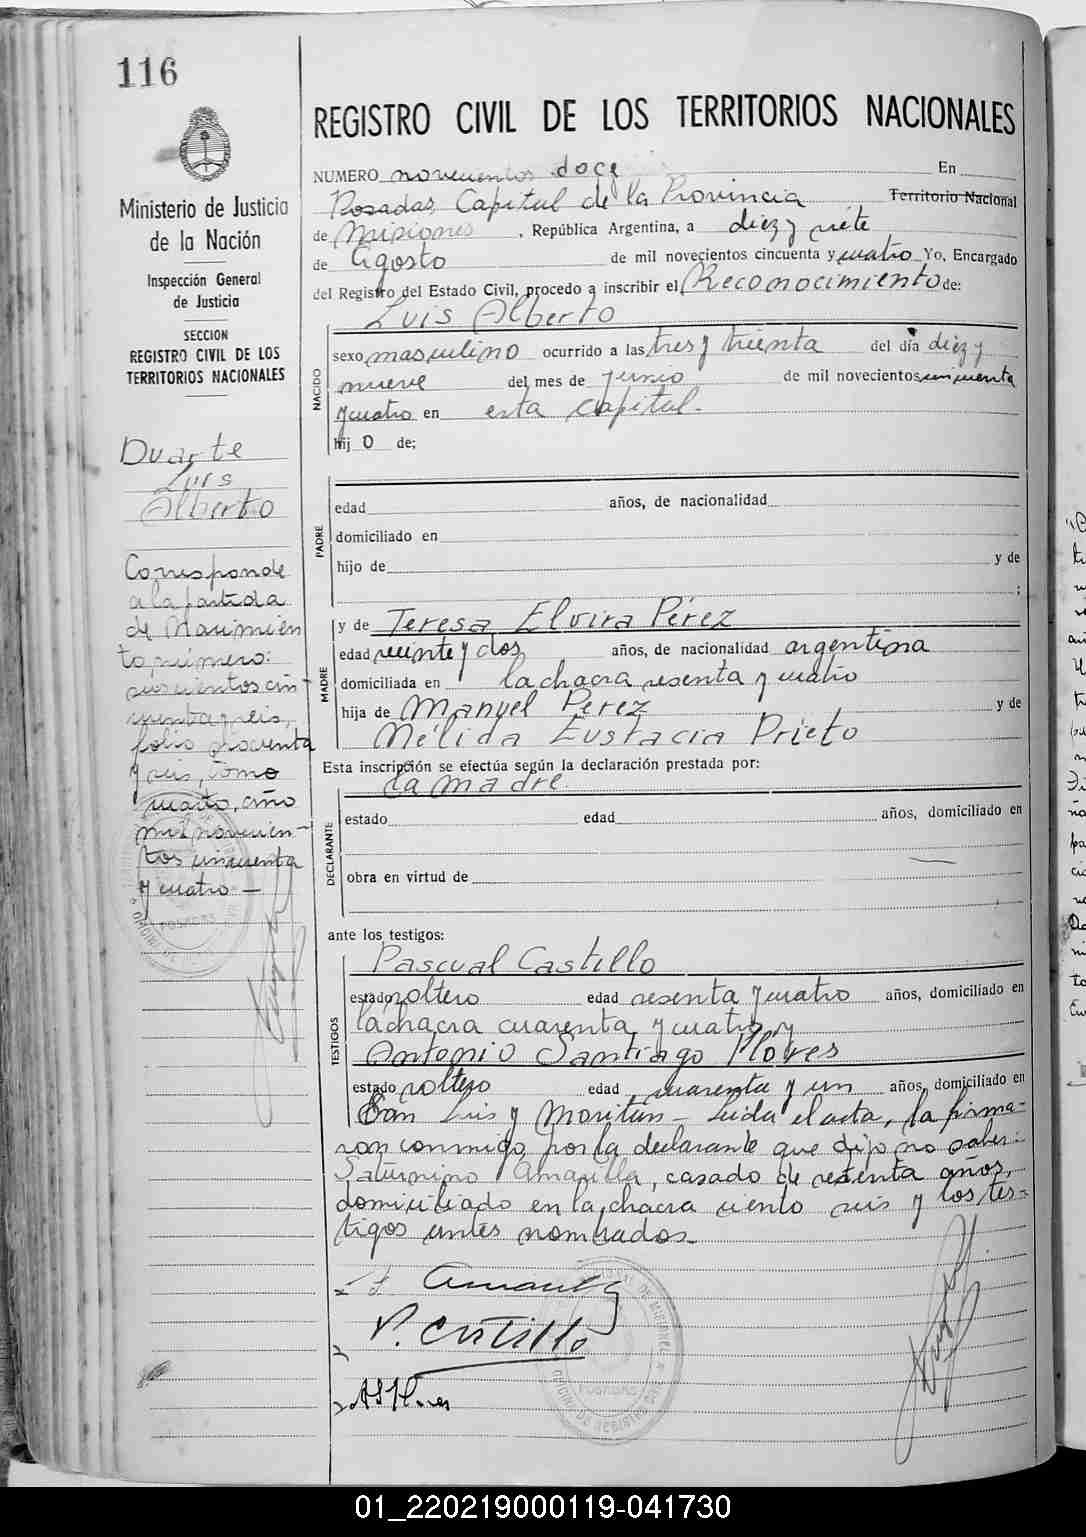 116
Ministerio de Justicia
de la Nación
Inspección General
de Justicia
SECCION
REGISTRO CIVIL DE LOS
TERRITORIOS NACIONALES
Duarte
Luis
Alberto
Corresponde
a la partida
de Nacimien
to primero:
cin
cuenta y seis,
folio
y seis, tomo
cuarto, año
mil novecien-
tos cincuenta
y cuatro —
REGISTRO CIVIL DE LOS TERRITORIOS NACIONALES
NUMERO novecientos doce En
Posadas, Capital de la Provincia Territorio Nacional
de Misiones, República Argentina, a diez y siete
de Agosto de mil novecientos cincuenta y cuatro Yo, Encargado
del Registro del Estado Civil, procedo a inscribir el Reconocimiento de:
Luis Alberto
NACIDO
sexo masculino ocurrido a las tres y treinta del día diez y
nueve del mes de junio de mil novecientos cincuenta
y cuatro en esta capital.
hij o de;
PADRE
edad años, de nacionalidad
domiciliado en
hijo de y de
;
MADRE
y de Teresa Elvira Pérez
edad veinte y dos años, de nacionalidad argentina
domiciliada en la chacra sesenta y cuatro
hija de Manuel Perez y de
Nélida Eustacia Prieto
Esta inscripción se efectúa según la declaración prestada por:
la madre.
DECLARANTE
estado edad años, domiciliado en
obra en virtud de
ante los testigos:
TESTIGOS
Pascual Castillo
estado soltero edad sesenta y cuatro años, domiciliado en
la chacra cuarenta y cuatro y
Antonio Santiago Flores
estado soltero edad cuarenta y un años, domiciliado en
San Luis y Moritan - Leida el acta, la firma-
ron conmigo, por la declarante que dijo no saber:
Saturnino Amarilla, casado de setenta años,
domiciliado en la chacra ciento seis y los tes-
tigos antes nombrados.
P. Castillo
POSADAS
01_220219000119-041730